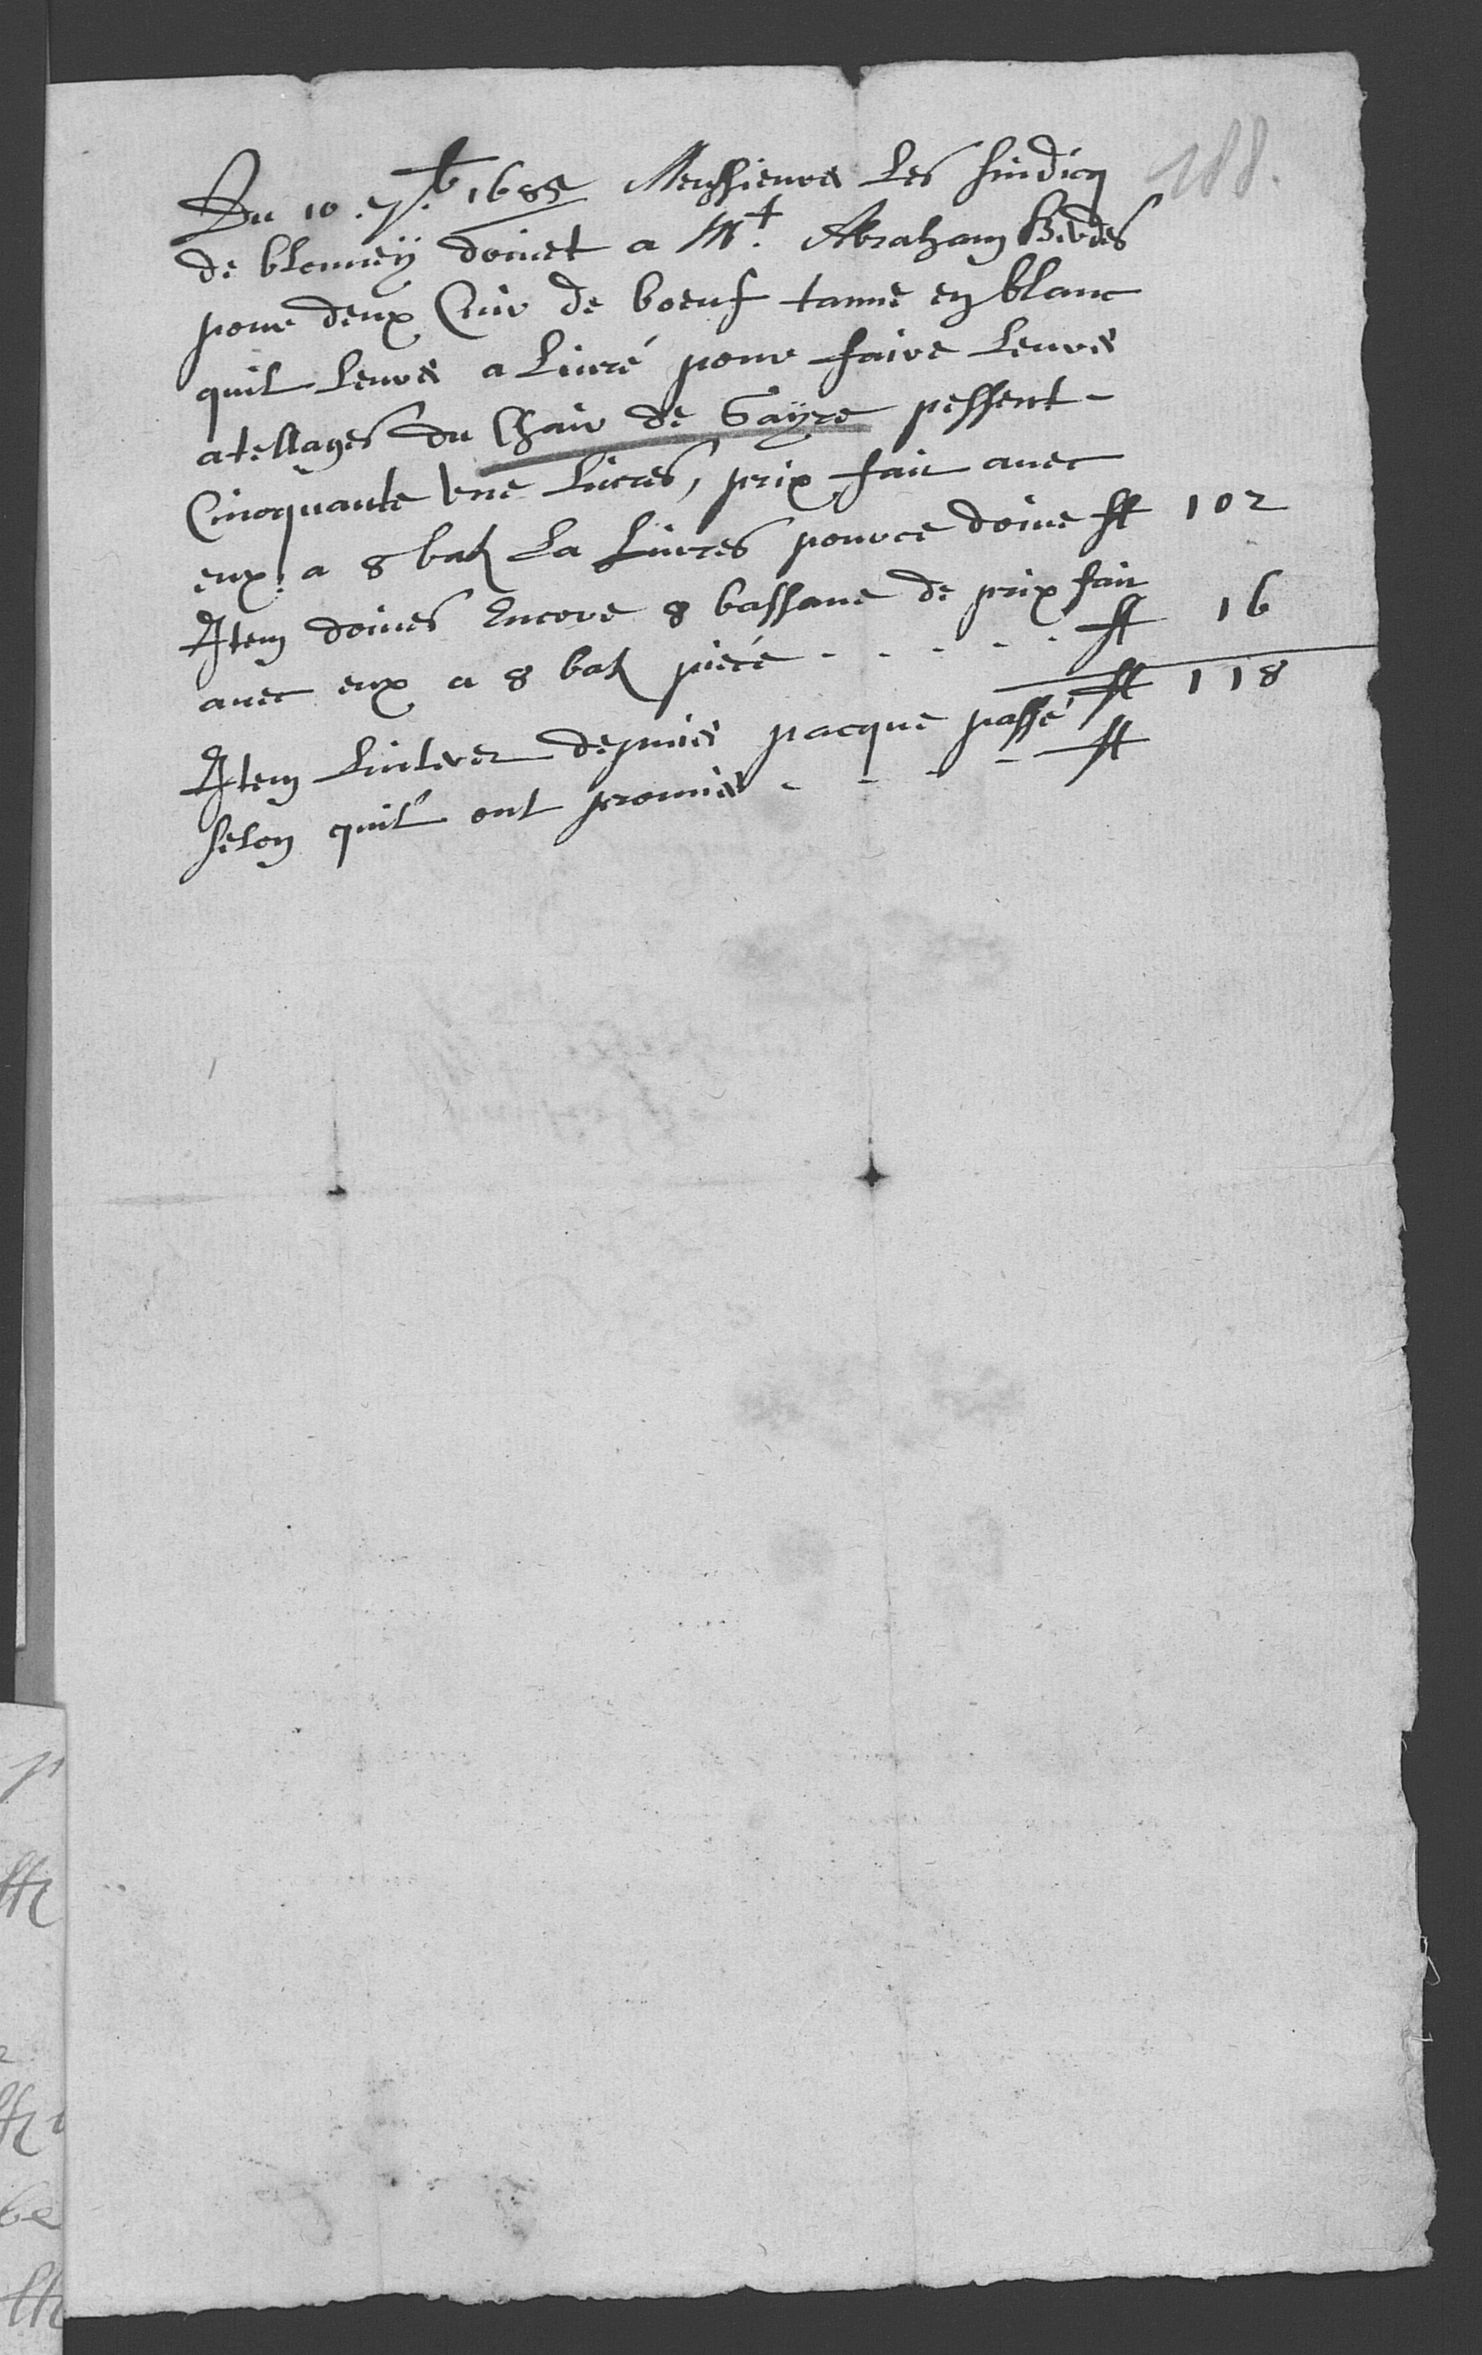 188.
Du 10. 7.b 1685 Messieurs Les sindicq
de blonney doivet a Mr. Abraham
pour deux Cuir de boeuf tanne en blanc
quil leurs a Livré pour faire leurs
atellages du Chair de Gayre pessent -
Cincquante vne Livres, prix fait avec
eux, a 8 batz La Livres pour ce doive ff 102
Item doives Encore 8 bassane de prix fait
avec eux a 8 batz piece - - - - - ff 16
ff 118
Item Linterez depuis pacque passé
selon quil ont promis - - - - ff